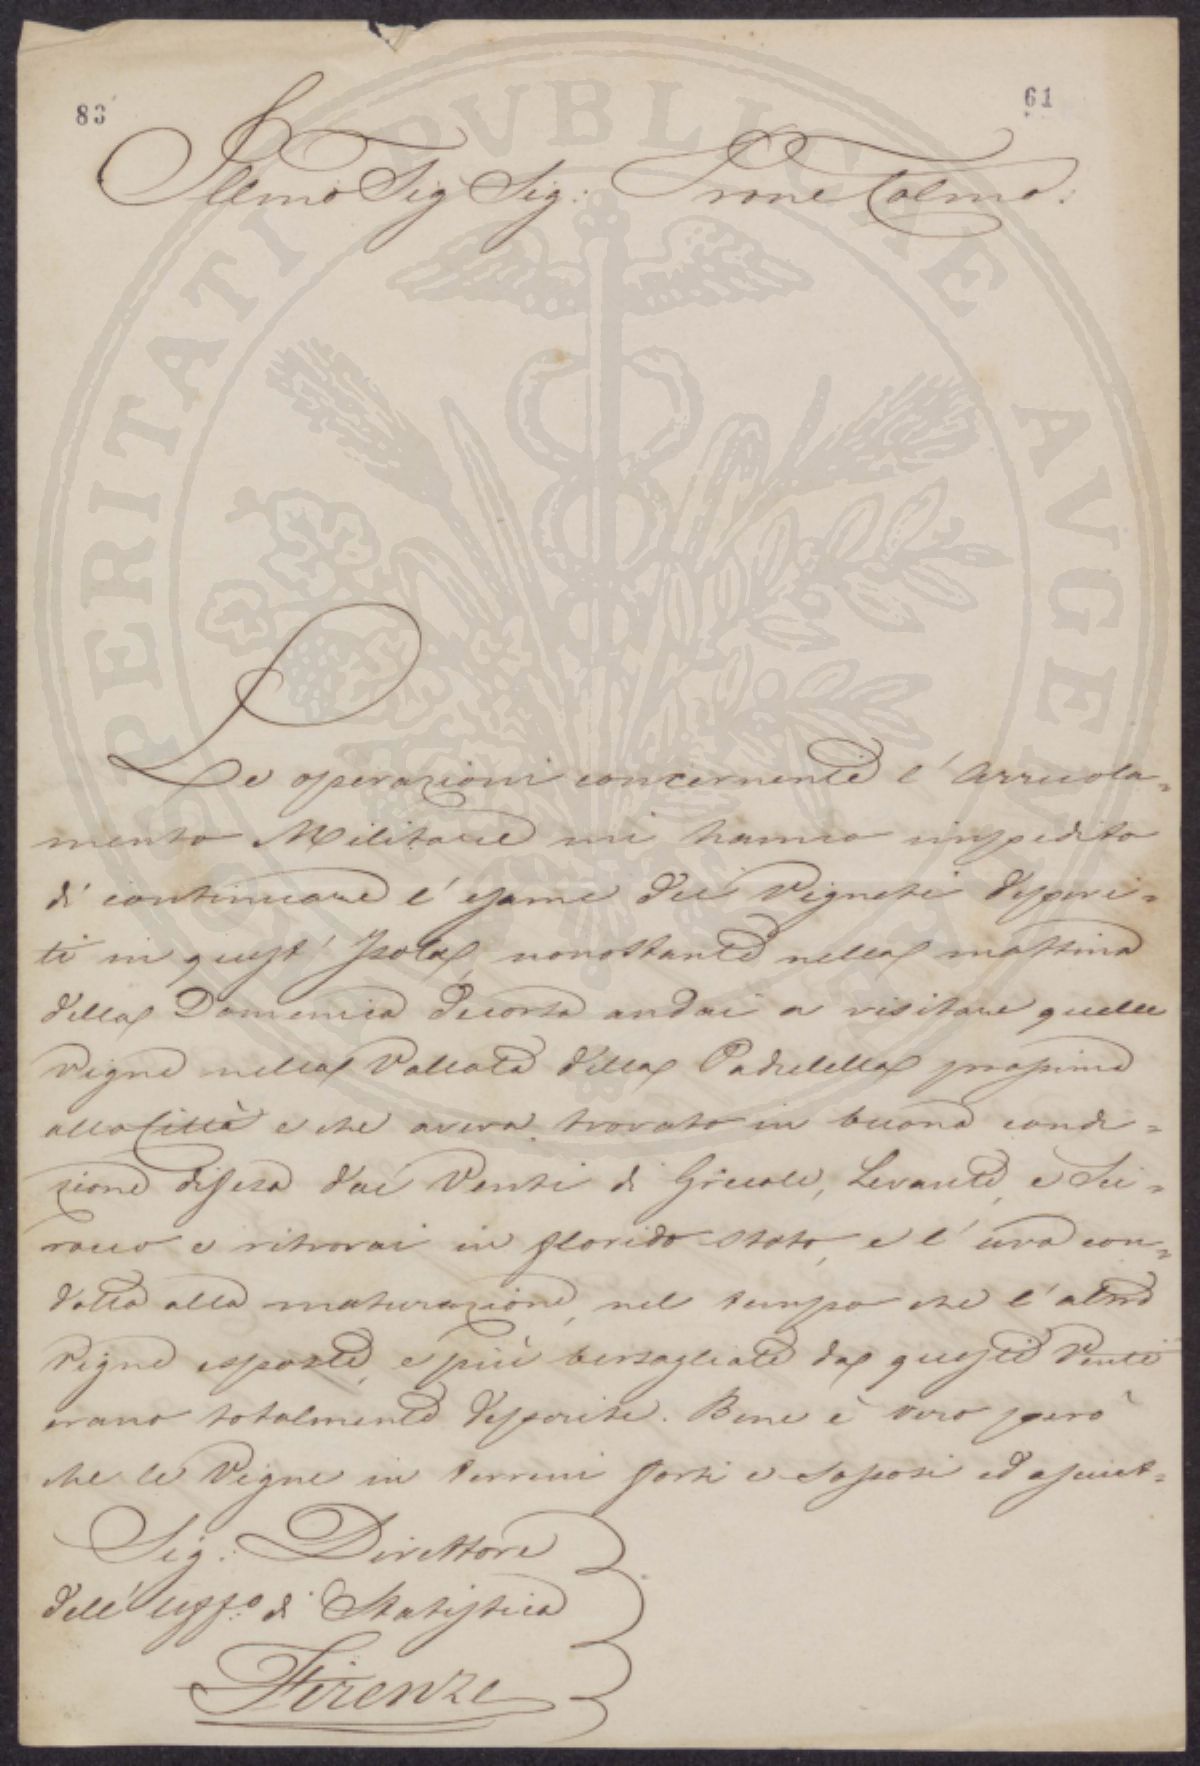 83
61
Illmo Sig Sig: Prone Colmo:
Le operazioni concernente l' Arruola=
mento Militare mi hanno impedito
di continuare l' esame dei Vigneti deperi=
ti in quest' Isola, nonostante nella mattina
della Domenica decorsa andai a visitare quelle
vigne nella Vallata della Padulella prossima
alla Città e che aveva trovato in buona condi=
zione difesa dai Venti di Grecale, Levante, e Sci=
rocco e ritrovai in florido stato, e l' uva con=
dotta alla maturazione, nel tempo che l' altre
vigne esposte, e più bersagliate da questi Venti
erano totalmente deperite. Bene è vero però
che le Vigne in terreni forti e saposi ed asciut=
Sig: Direttore
dell' Uffo: di Statistica
Firenze
PROSPERITATI PVBLICAE AVGENDAE